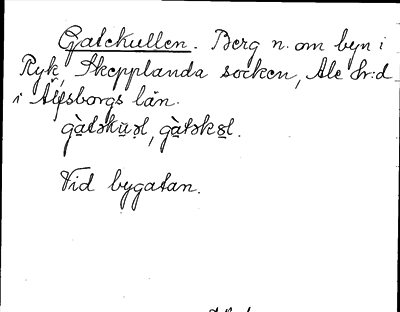 Gatekullen. Berg n. om byn i
Ryk, Skepplanda socken, Ale hr:d
i Älfsborgs län.
Vid bygatan.